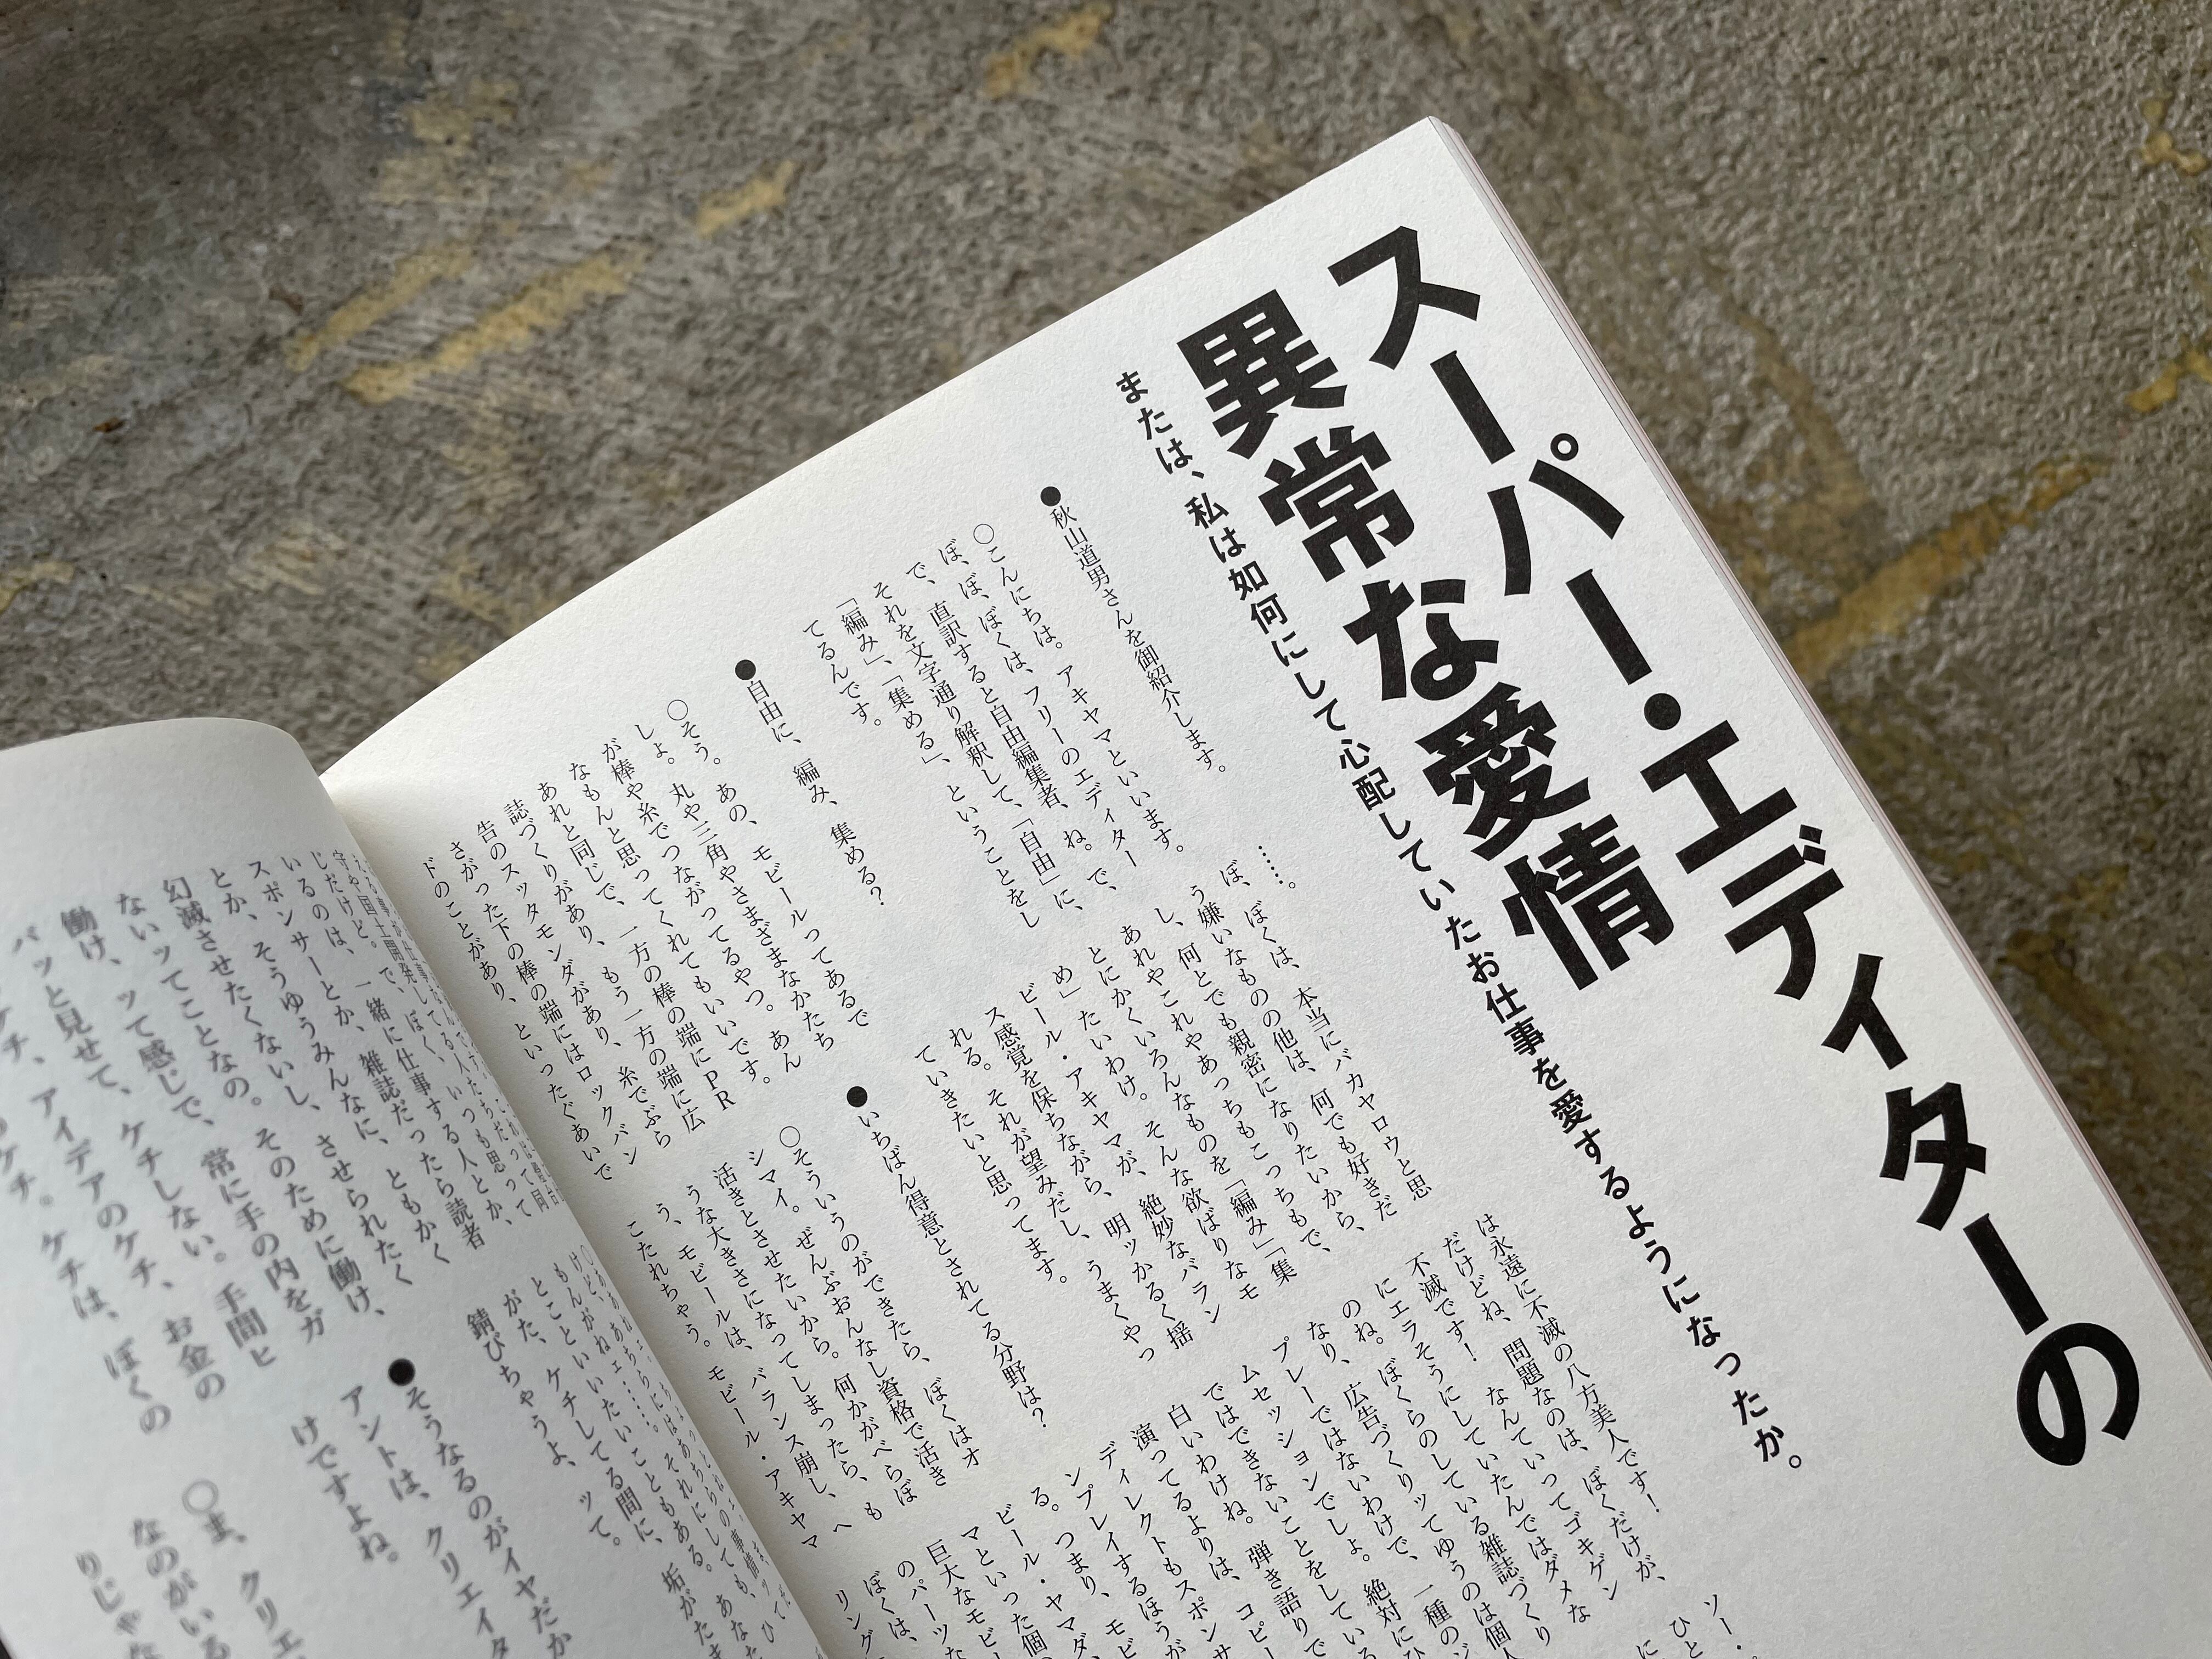 スーパー・エディターの
異常な愛情
または、私は如何にして心配していたお仕事を愛するようになったか。
●秋山道男さんを御紹介します。
○こんにちは。アキヤマといいます。
ぼ、ぼ、ぼくは、フリーのエディター
で、直訳すると自由編集者、ね。で、
それを文字通り解釈して、「自由」に、
「編み」、「集める」、ということをし
てるんです。
●自由に、編み、集める?
○そう。あの、モビールってあるで
しょ。丸や三角やさまざまなかたち
が棒や糸でつながってるやつ。あん
なもんと思ってくれてもいいです。
あれと同じで、一方の棒の端にPR
誌づくりがあり、もう一方の端に広
告のスッタモンダがあり、糸でぶら
さがった下の棒の端にはロックバン
ドのことがあり、といったぐあいで
……。
ぼ、ぼくは、本当にバカヤロウと思
う嫌いなものの他は、何でも好きだ
し、何とでも親密になりたいから、
あれやこれやあっちもこっちもで、
とにかくいろんなものを「編み」「集
め」たいわけ。そんな欲ばりなモ
ビール・アキヤマが、絶妙なバラン
ス感覚を保ちながら、明ッかるく揺
れる。それが望みだし、うまくやっ
ていきたいと思ってます。
●いちばん得意とされてる分野は?
○そういうのができたら、ぼくはオ
シマイ。ぜんぶおんなし資格で活き
活きとさせたいから。何かがべらぼ
うな大きさになってしまったら、も
う、モビールは、バランス崩し、へ
こたれちゃう。モビール・アキヤマ
は永遠に不滅の八方美人です!
だけどね、問題なのは、ぼくだけが、
不滅です!なんていってゴキゲン
にエラそうにしていたんではダメな
のね。ぼくらのしている雑誌づくり
なり、広告づくりッてゆうのは個人
プレーではないわけで、一種のジ
ムセッションでしょ。絶対にひ
ではできないことをしている
わけね。弾き語りで
白いわけね。
演ってるよりは、コピー
ディレクトもスポンサ
ンプレイするほうが
る。つまり、モビ
ビール・ヤマダ、
マといった個
巨大なモビー
のパーツな
ぼくは、
リング
ソー・
ひと
に
いるのは、一緒に仕事する人とか、
スポンサーとか、雑誌だったら読者
とか、そうゆうみんなに、ともかく
幻滅させたくないし、させられたく
ないッてことなの。そのために働け、
働け、ッて感じで、常に手の内をガ
バッと見せて、ケチしない。手間ヒ
アイデアのケチ、お金の
ケチ。ケチは、ぼくの
とことんといいたいこともある。
がた、ケチしてる間に、垢がたま
錆びちゃうよ、ッて。
●そうなるのがイヤだか
アントは、クリエイタ
けですよね。
○ま、クリエ
なのがいる
りじゃな